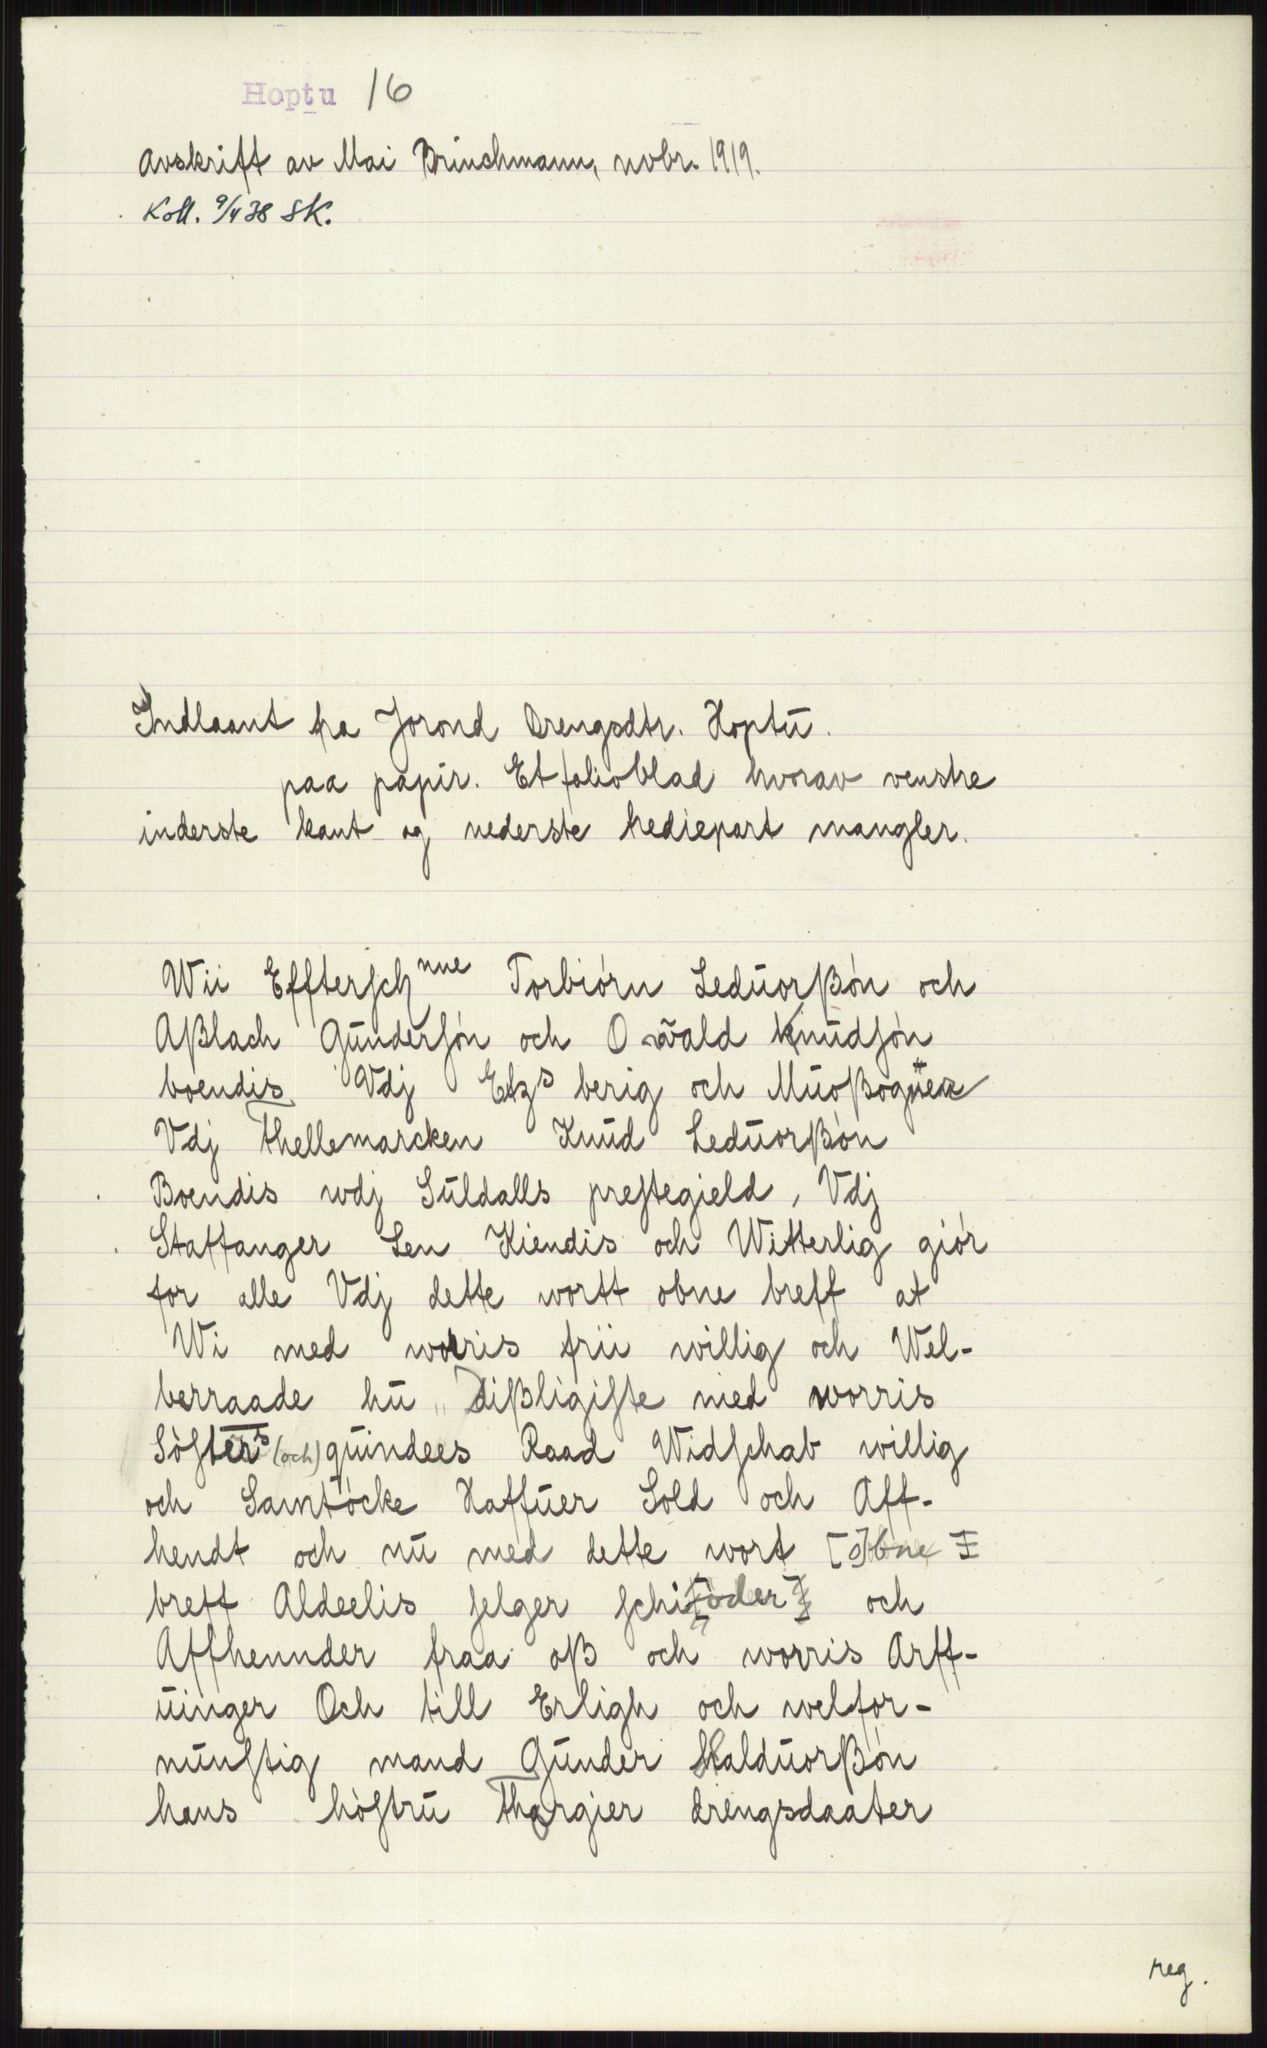 Hoptu 16
Avskrift av Mai Brinchmann, novbr. 1919.
Koll. 9/4 38 SK.
Indlaant fra Jorond Drengsdtr. Hoptu.
paa papir. Et folioblad hvorav venstre
inderste kant og nederste trediepart mangler.
Wii Effterſch nne Torbiórn Leduorßón och
Aßlach Gunderſón och Owald Knudſón
boendis Vdj berig och
Vdj Thellemarcken Knud Leduorßón
Boendis wdj Suldalls preſtegield, Vdj
Staffanger Len Kiendis och Witterlig giór
for alle Vdj dette wortt obne breff at
Wi med worris frii willig och Wel-
berraade hu Dißligiſte med worris
Sóſters (och) quindees Raad Widſchab willig
och Samtócke Haffuer Sold och Aff-
hendt och nu med dette wort [o]bne
breff Aldeelis ſelger ſchi[óder] och
Affhennder fraa oß och worris Arff-
uinger Och till Erligh och welfor-
nunſtig mand Gunder Halduorßón
hans hóſtru Thorgier drengsdaater
reg.